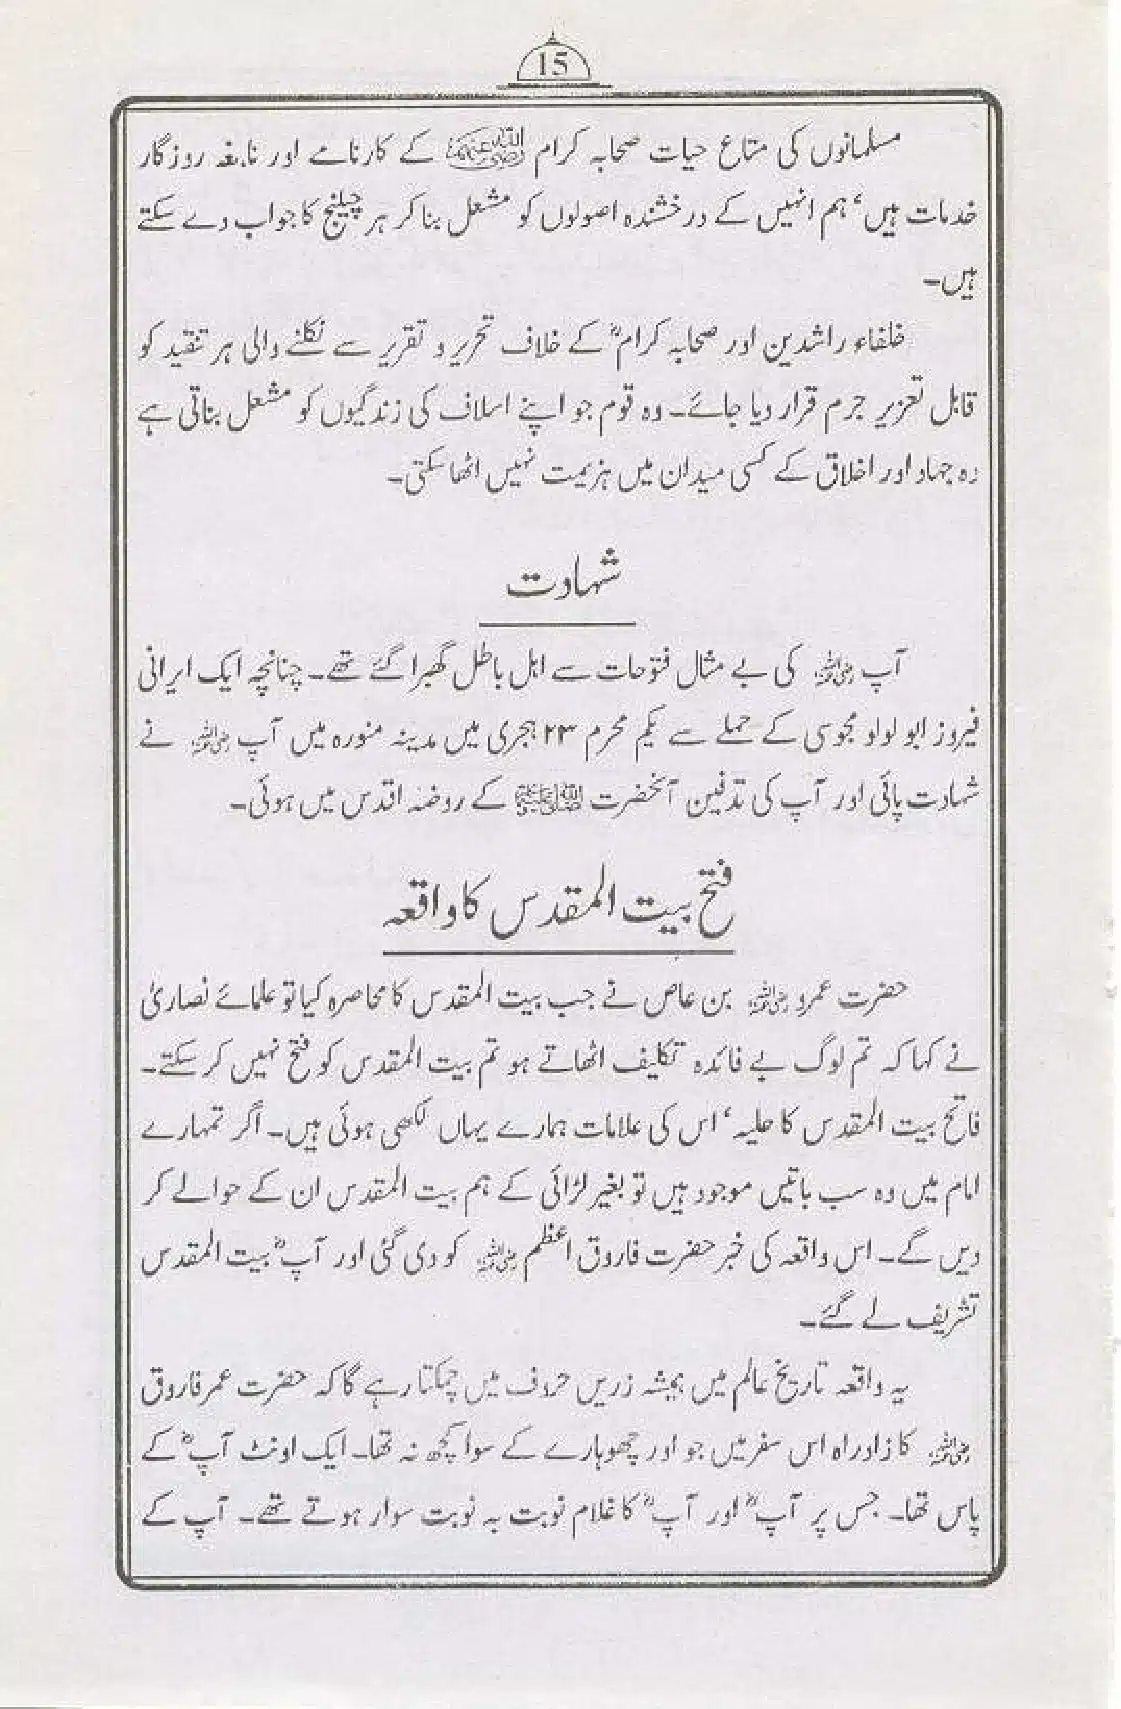 15
مسلمانوں کی متاع حیات صحابہ کرام رضی اللہ عنہم کے کارنامے اور نابغہ روزگار
خدمات ہیں، ہم انہیں کے درخشندہ اصولوں کو مشعل بنا کر ہر چیلنج کا جواب دے سکتے
ہیں۔
خلفاء راشدین اور صحابہ کرامؓ کے خلاف تحریر و تقریر سے نکلنے والی ہر تنقید کو
قابل تعزیر جرم قرار دیا جائے۔ وہ قوم جو اپنے اسلاف کی زندگیوں کو مشعل بناتی ہے
وہ جہاد اور اخلاق کے کسی میدان میں ہزیمت نہیں اٹھا سکتی۔
شہادت
آپ رضی اللہ عنہ کی بے مثال فتوحات سے اہل باطل گھبرا گئے تھے۔ چنانچہ ایک ایرانی
فیروز ابو لولو مجوسی کے حملے سے یکم محرم ۲۳ ہجری میں مدینہ منورہ میں آپ رضی اللہ عنہ نے
شہادت پائی اور آپ کی تدفین آنحضرت صلی اللہ علیہ وسلم کے روضہ اقدس میں ہوئی۔
فتح بیت المقدس کا واقعہ
حضرت عمرو رضی اللہ عنہ بن عاص نے جب بیت المقدس کا محاصرہ کیا تو علمائے نصاریٰ
نے کہا کہ تم لوگ بے فائدہ تکلیف اٹھاتے ہو تم بیت المقدس کو فتح نہیں کر سکتے۔
فاتح بیت المقدس کا حلیہ، اس کی علامات ہمارے یہاں لکھی ہوئی ہیں۔ اگر تمہارے
امام میں وہ سب باتیں موجود ہیں تو بغیر لڑائی کے ہم بیت المقدس ان کے حوالے کر
دیں گے۔ اس واقعہ کی خبر حضرت فاروق اعظم رضی اللہ عنہ کو دی گئی اور آپؓ بیت المقدس
تشریف لے گئے۔
یہ واقعہ تاریخ عالم میں ہمیشہ زریں حروف میں چمکتا رہے گا کہ حضرت عمر فاروق
رضی اللہ عنہ کا زاد راہ اس سفر میں جو اور چھوہارے کے سوا کچھ نہ تھا۔ ایک اونٹ آپؓ کے
پاس تھا۔ جس پر آپؓ اور آپؓ کا غلام نوبت بہ نوبت سوار ہوتے تھے۔ آپ کے